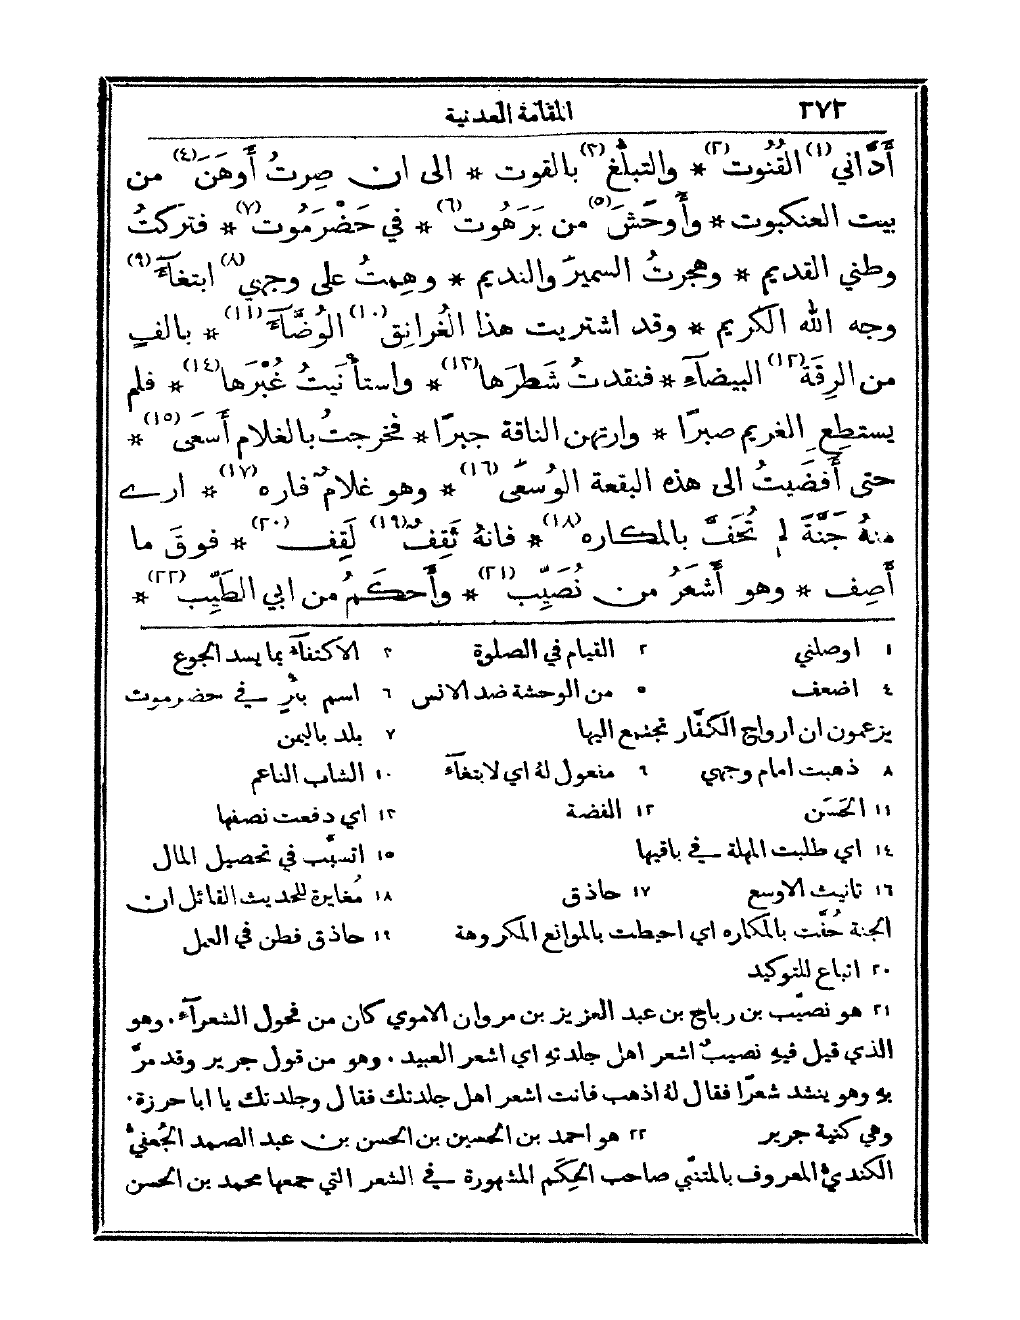 ٢٧٢ المقامة العدنية
أَدَّاني(١) القُنُوت(٢) * والتبلُّغ(٣) بالقوت * الى ان صِرتُ أَوهَنَ(٤) من
بيت العنكبوت * وأَوحَشَ(٥) من بَرَهُوت(٦) * في حَضْرَمُوت(٧) * فتركتُ
وطني القديم * وهجرتُ السميرَ والنديم * وهِمتُ على وجهي(٨) ابتغآءَ(٩)
وجه الله الكريم * وقد اشتريت هذا الغُرانِق(١٠) الوُضَّآءَ(١١) * بالفٍ
من الرِقَة(١٢) البيضآءِ * فنقدتُ شَطرَها(١٣) * واستأْنَيتُ غُبْرَها(١٤) * فلم
يستطعِ الغريم صبرًا * وارتهن الناقة جبرًا * فخرجتُ بالغلام أَسعَى(١٥) *
حتى أَفضَيتُ الى هذه البقعة الوُسعَى(١٦) * وهو غلامٌ فاره(١٧) * ارے
منهُ جَنَّةً لم تُحَفَّ بالمكاره(١٨) * فانهُ ثَقِفٌ(١٩) لَقِف(٢٠) * فوقَ ما
أَصِف * وهو أَشعَرُ من نُصَيِّب(٢١) * وأَحكَمُ من ابي الطَيِّب(٢٢) *
١ اوصلني ٢ القيام في الصلوة ٣ الاكتفآء بما يسد الجوع
٤ اضعف ٥ من الوحشة ضد الانس ٦ اسم بئرٍ في حضرموت
يزعمون ان ارواح الكفَّار تجتمع اليها ٧ بلد باليمن
٨ ذهبت امام وجهي ٩ مفعول لهُ اي لابتغآء ١٠ الشاب الناعم
١١ الحَسَن ١٢ الفضة ١٣ اي دفعت نصفها
١٤ اي طلبت المهلة في باقيها ١٥ اتسبَّب في تحصيل المال
١٦ تانيث الاوسع ١٧ حاذق ١٨ مُغايرة للحديث القائل ان
الجنة حُفَّت بالمكاره اي احيطت بالموانع المكروهة ١٩ حاذق فطن في العمل
٢٠ اتباع للتوكيد
٢١ هو نصيِّب بن رباح بن عبد العزيز بن مروان الاموي كان من فحول الشعرآء. وهو
الذي قيل فيهِ نصيبٌ اشعر اهل جلدتهِ اي اشعر العبيد. وهو من قول جرير وقد مرَّ
بهِ وهو ينشد شعرًا فقال لهُ اذهب فانت اشعر اهل جلدتك فقال وجلدتك يا ابا حرزة.
وهي كنية جرير ٢٢ هو احمد بن الحسين بن الحسن بن عبد الصمد الجُعفيُّ
الكنديُّ المعروف بالمتنبّي صاحب الحِكَم المشهورة في الشعر التي جمعها محمد بن الحسن